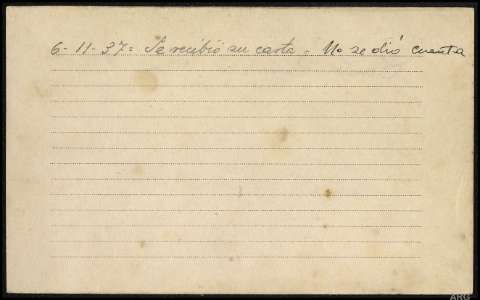 6-11-37= Se recibió su carta - No se dió cuenta
ARG